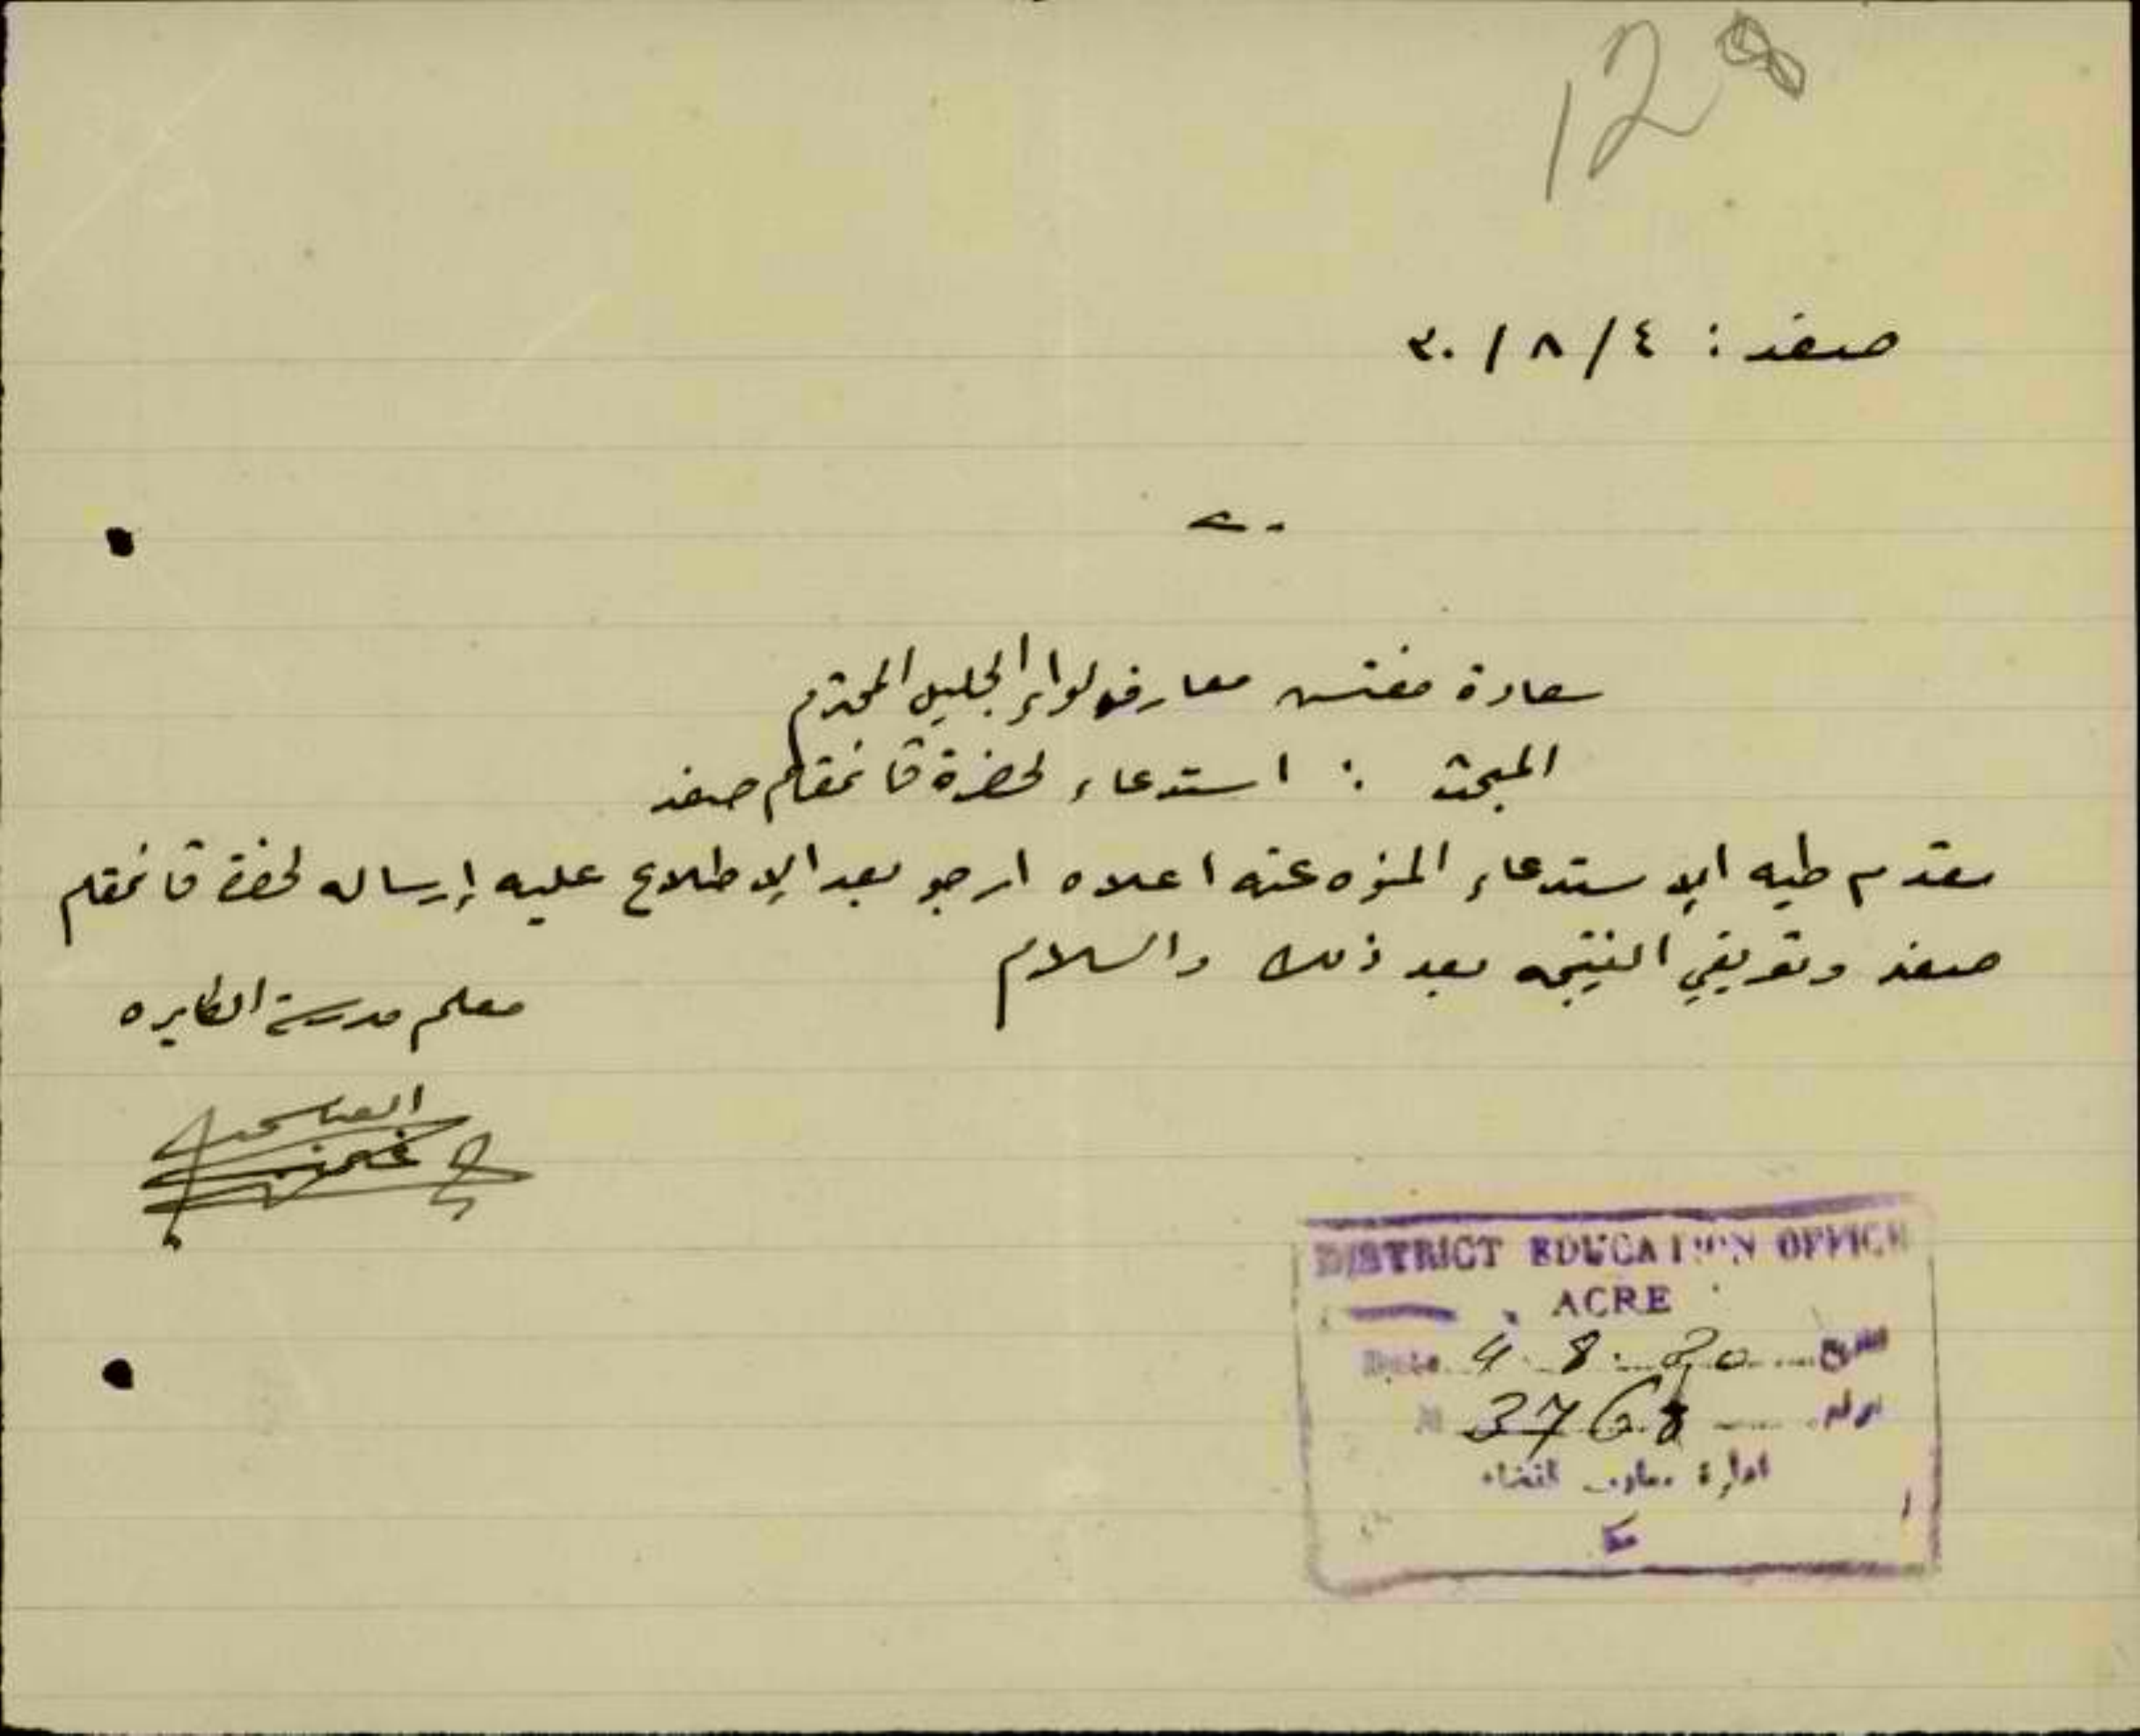 128
صفد : ٤ / ٨ / ٣٠
سعادة مفتش معارف لواء الجليل المحترم
المبحث : استدعاء لحضرة قائمقام صفد
مقدم طيه الاستدعاء المنوه عنه اعلاه ارجو بعد الإطلاع عليه إرساله لحضرة قائمقام
صفد وتعريفي النتيجه بعد ذلك والسلام
معلم مدرسة
DISTRICT EDUCATION OFFICE
ACRE
Date 4.8.30 التاريخ
3768 نمرة
ادارة معارف القضاء
عكا